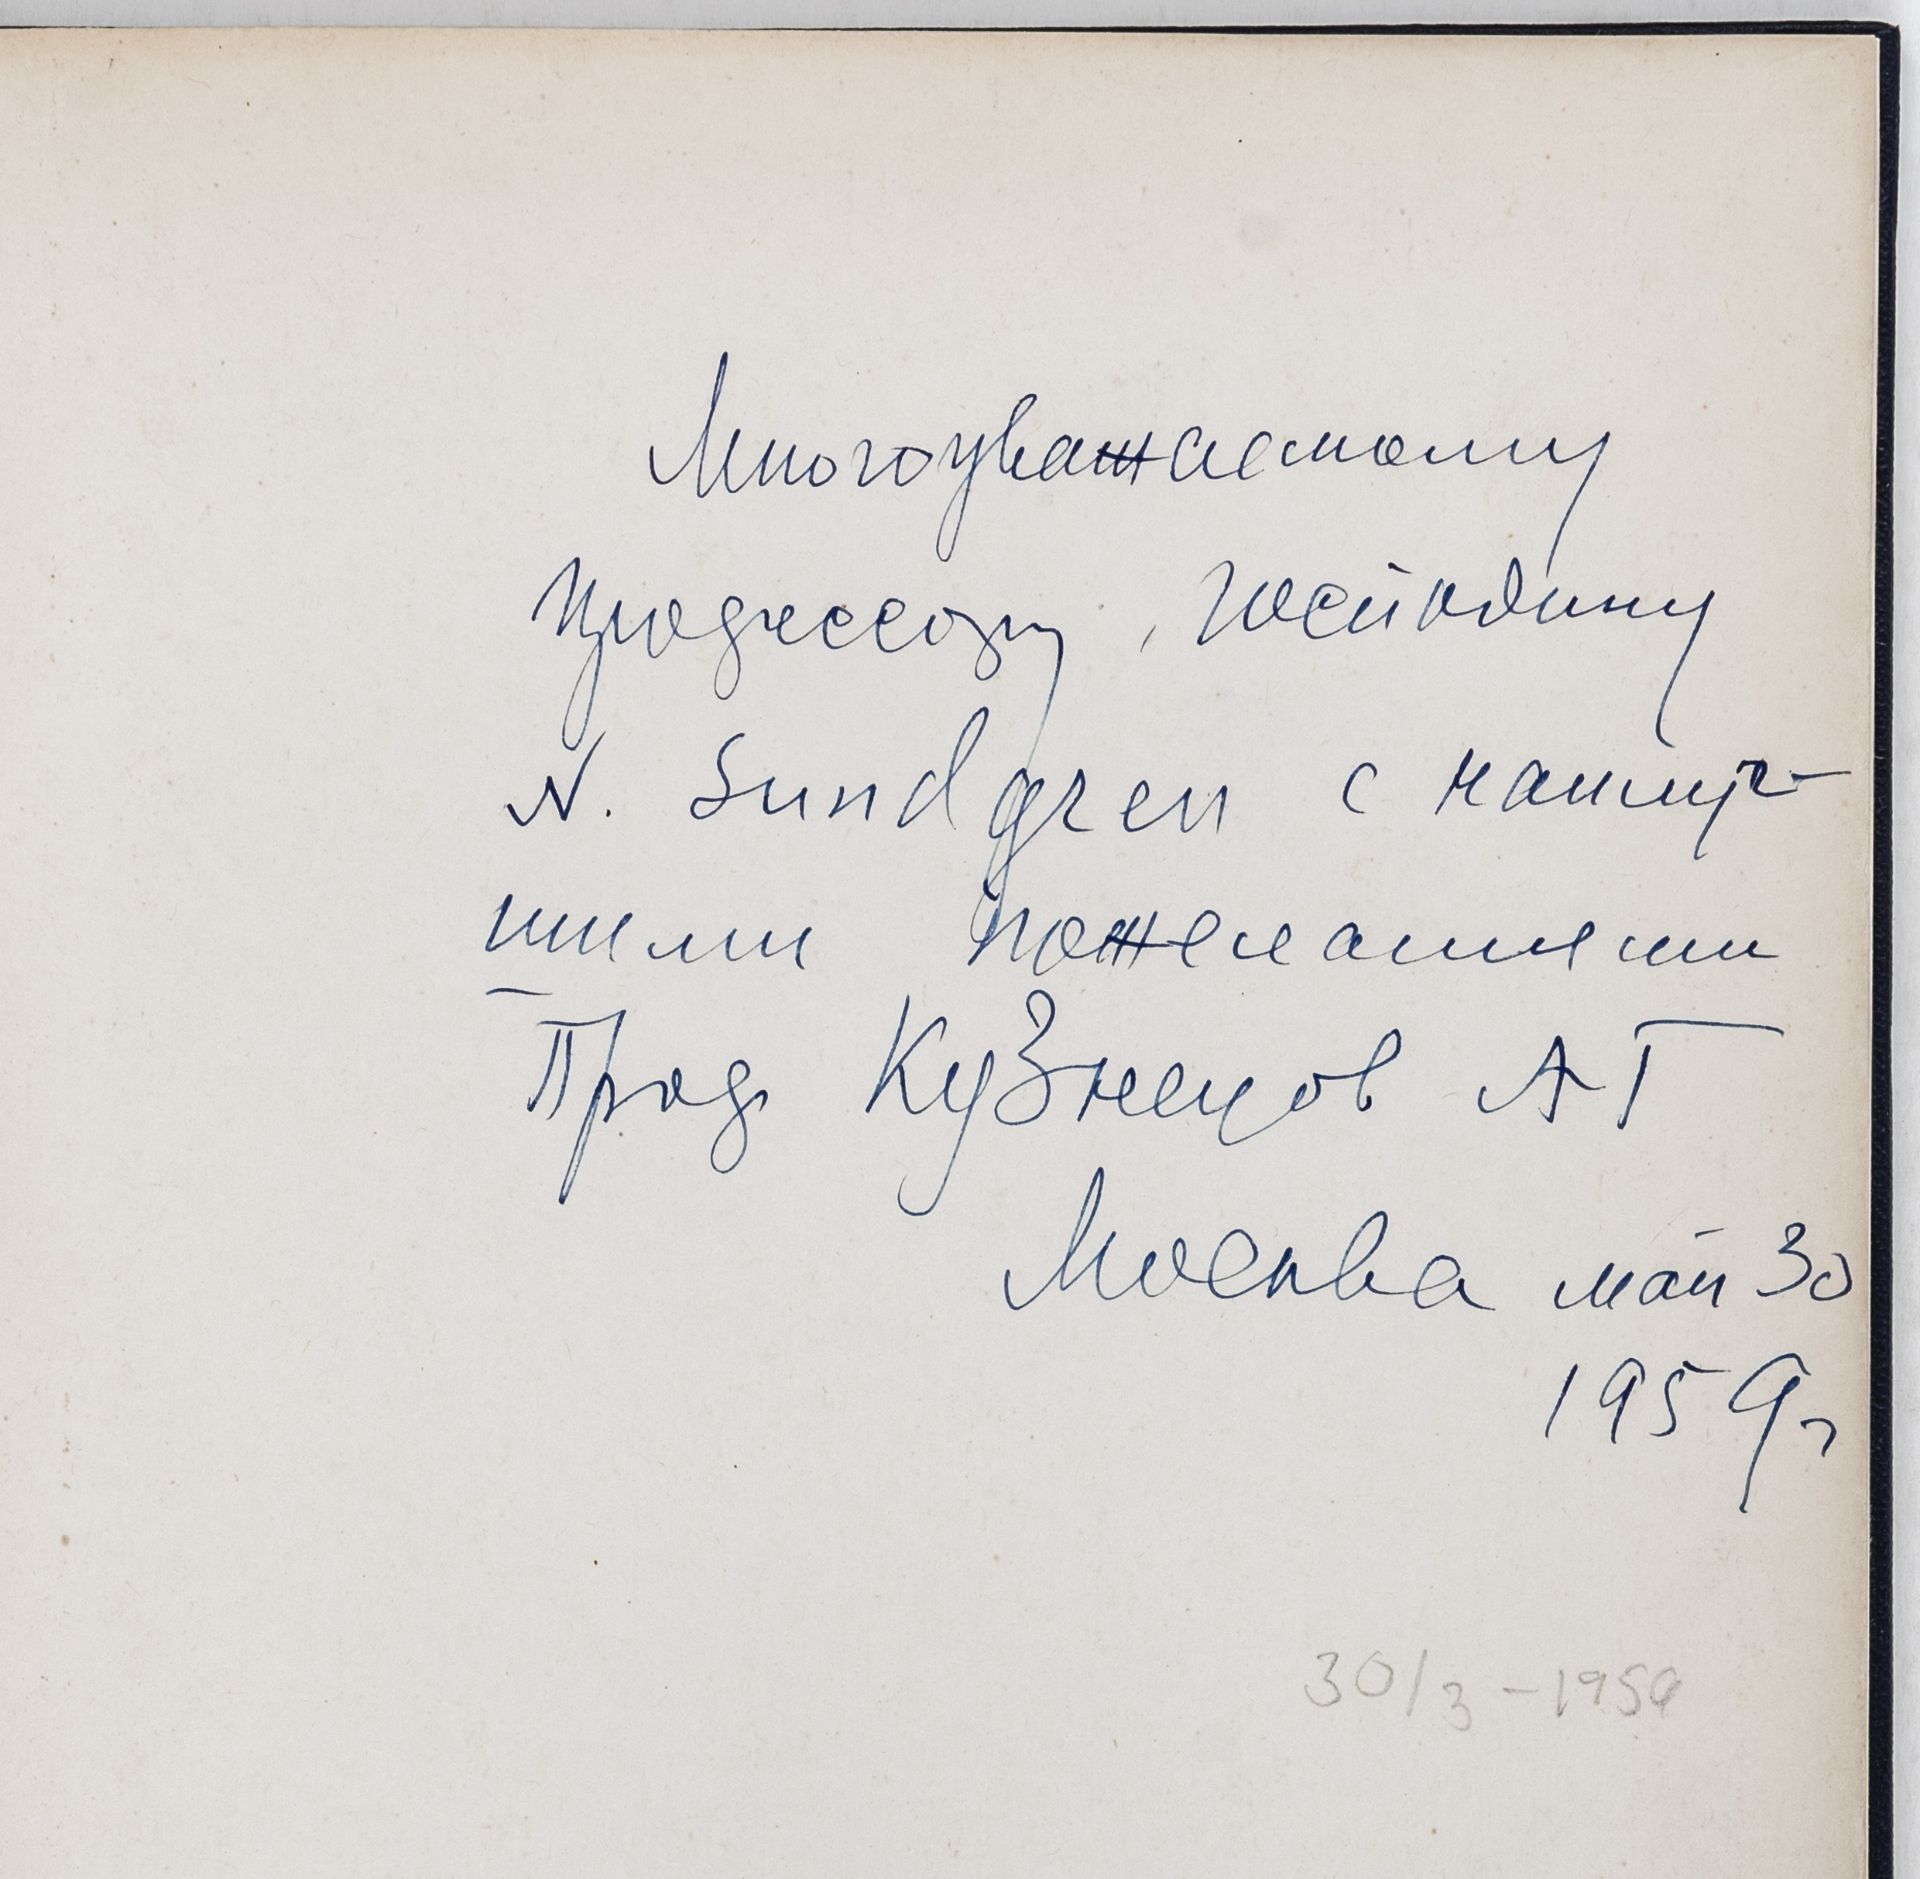 Многоуважаемому
профессору, господину
N. Sundgren с наилуч-
шими пожеланиями
Проф Кузнецов А Г
Москва май 30
1959 г
30/3 - 1959